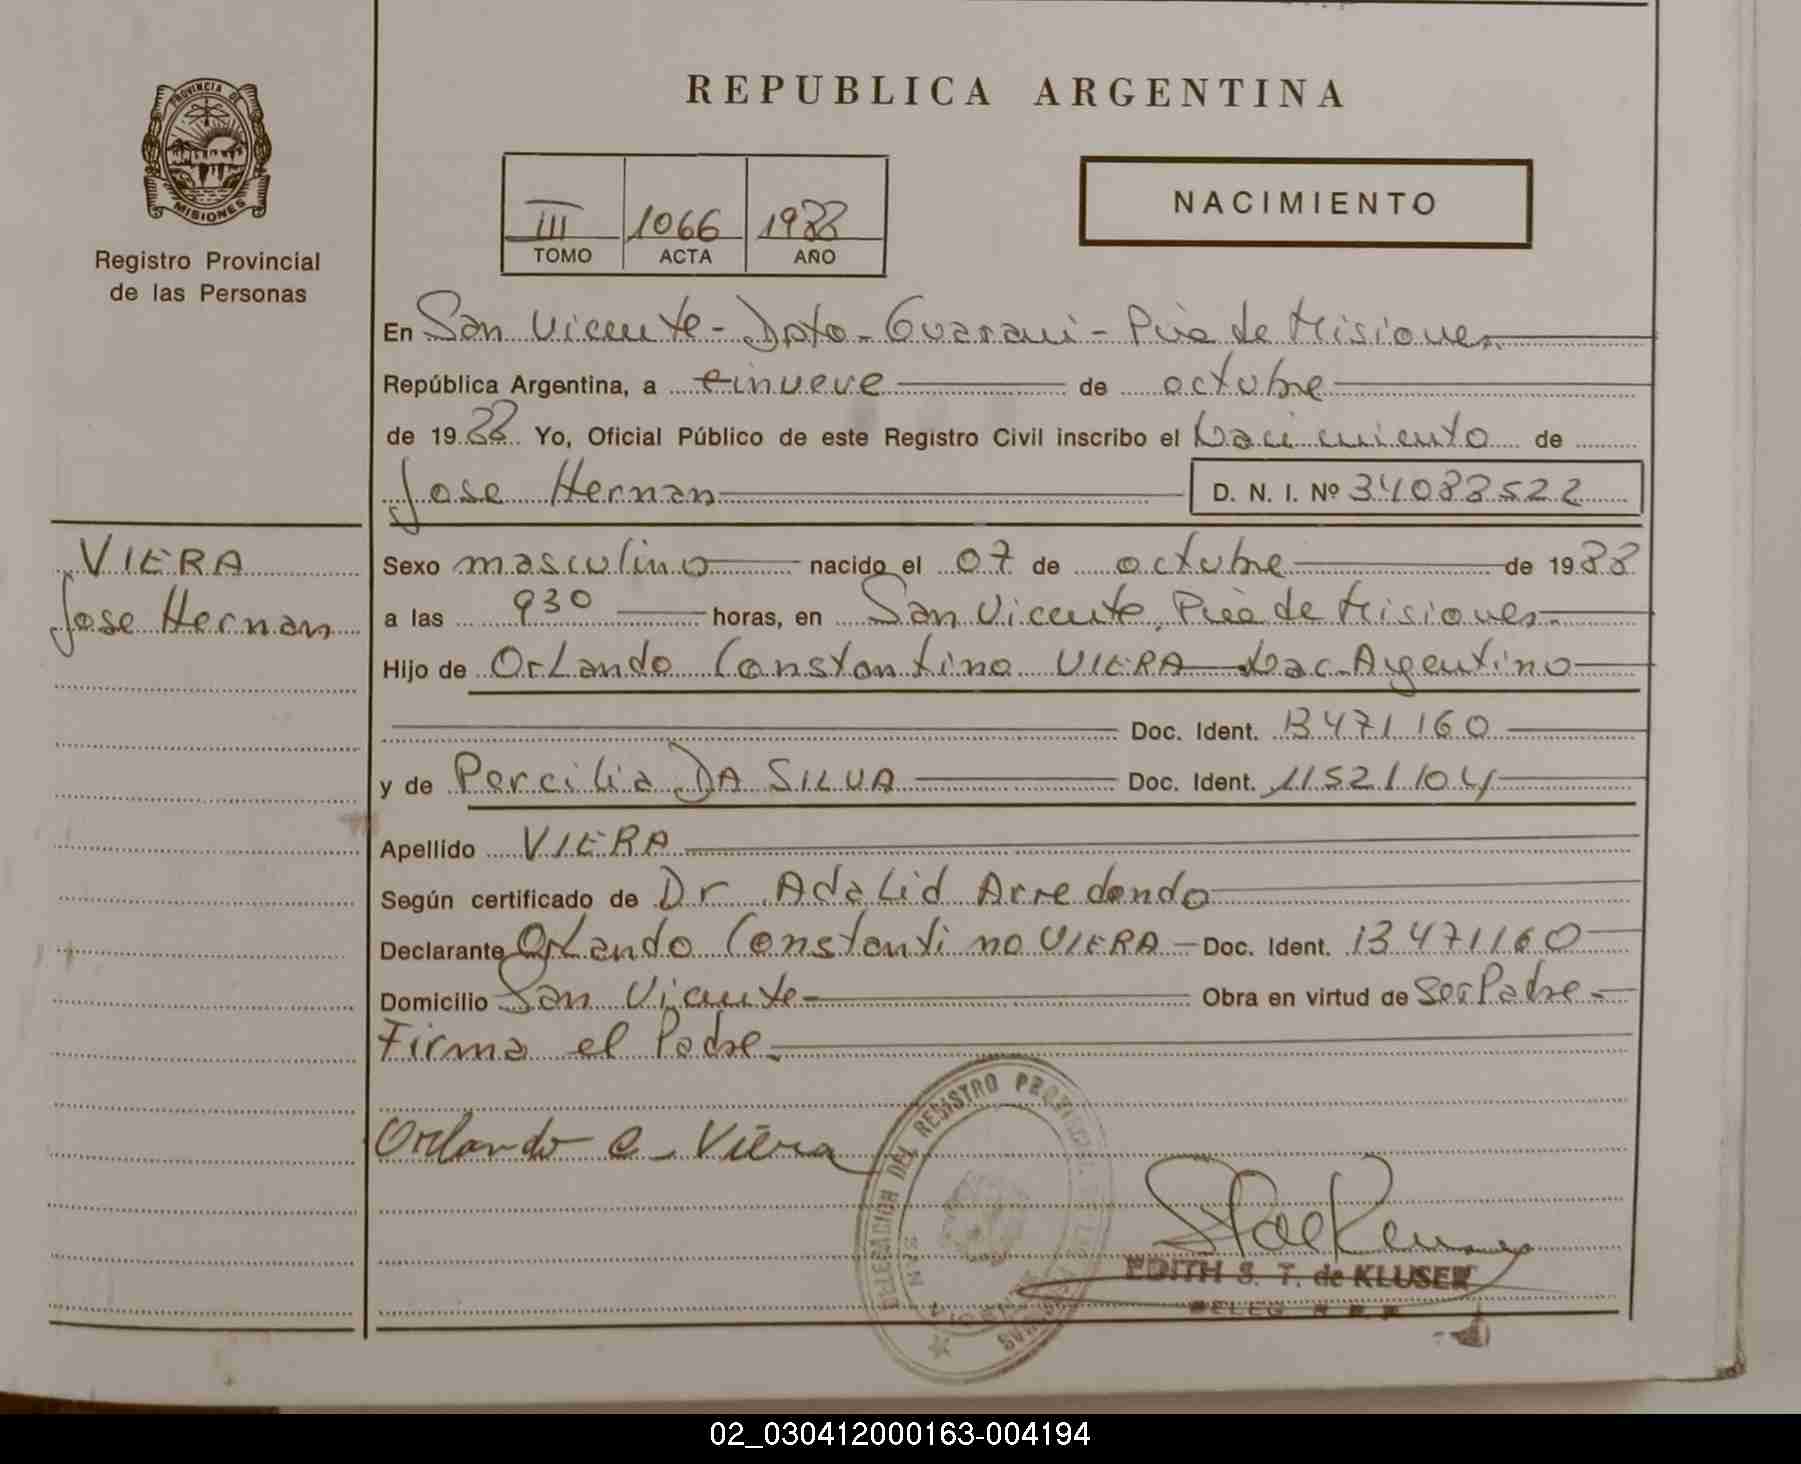 REPUBLICA ARGENTINA
PROVINCIA DE
MISIONES
Registro Provincial
de las Personas
III 1066 1988
TOMO ACTA AÑO
NACIMIENTO
En San Vicente - Dpto - Guarani - Pcia de Misiones
República Argentina, a nueve de octubre
de 1988 Yo, Oficial Público de este Registro Civil inscribo el Nacimiento de
Jose Hernan D. N. I. Nº 34088522
VIERA
Jose Hernan
Sexo masculino nacido el 07 de octubre de 1988
a las 930 horas, en San Vicente, Pcia de Misiones
Hijo de Orlando Constantino VIERA Nac. Argentino
Doc. Ident. 13471160
y de Percilia DA SILVA Doc. Ident. 11521104
Apellido VIERA
Según certificado de Dr Adalid Arredondo
Declarante Orlando Constantino VIERA - Doc. Ident. 13471160
Domicilio San Vicente Obra en virtud de Ser Padre
Firma el Padre.
Orlando C. Viera
DELEGACION DEL REGISTRO PROVINCIAL DE LAS
SAN
EDITH S. T. de KLUSER
DELEG
02_030412000163-004194